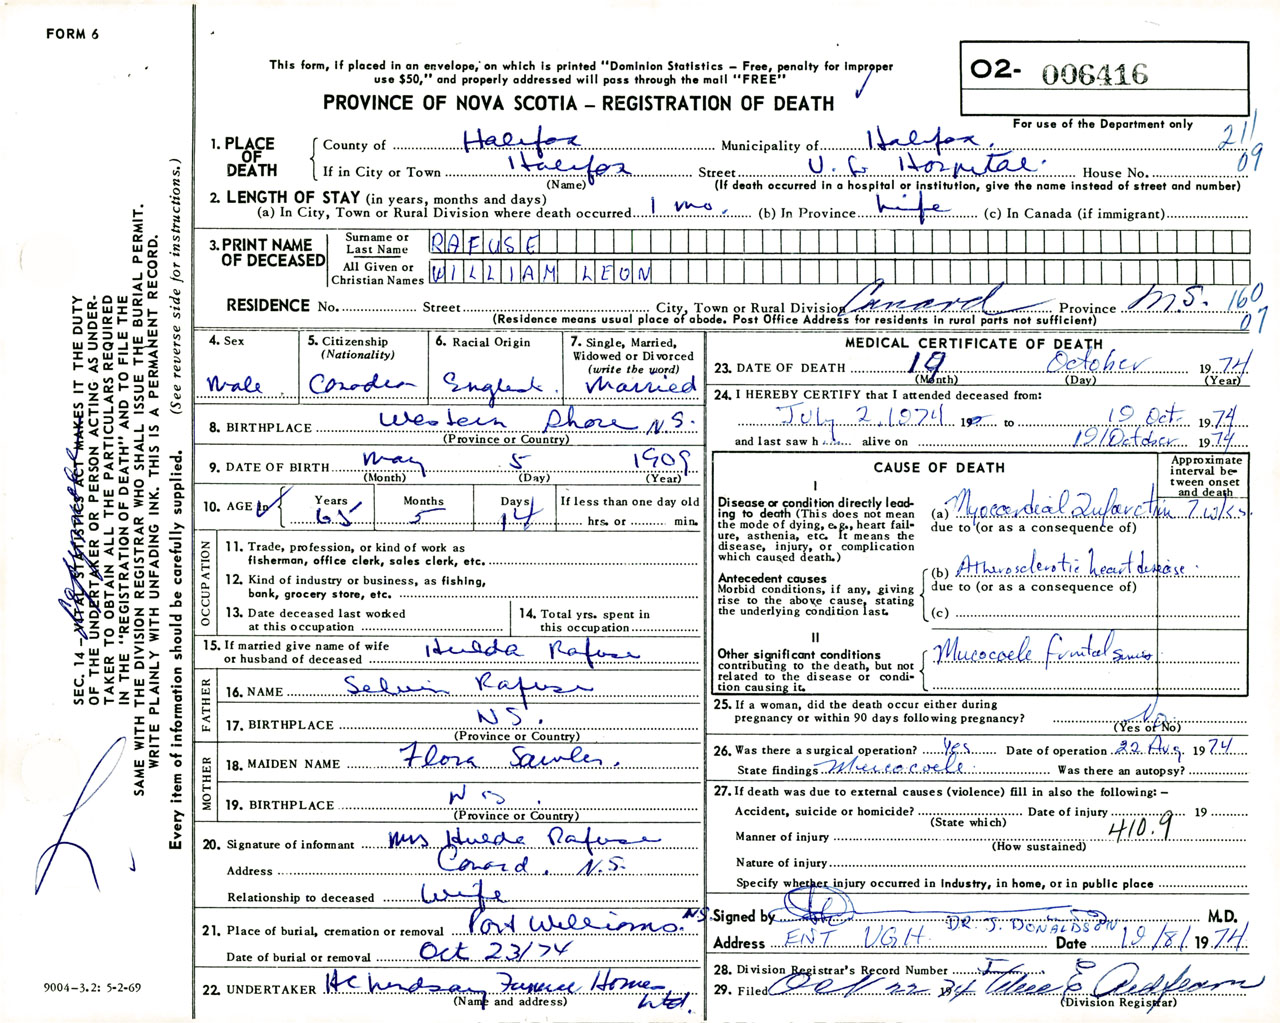 FORM 6
This form, if placed in an envelope, on which is printed "Dominion Statistics – Free, penalty for improper
use $50," and properly addressed will pass through the mail "FREE"
PROVINCE OF NOVA SCOTIA – REGISTRATION OF DEATH
02- 006416
For use of the Department only
211
09
1. PLACE OF DEATH
County of Halifax Municipality of Halifax.
If in City or Town Halifax Street V. G Hospital. House No.
(Name) (If death occurred in a hospital or institution, give the name instead of street and number)
2. LENGTH OF STAY (in years, months and days)
(a) In City, Town or Rural Division where death occurred 1 mo. (b) In Province Life (c) In Canada (if immigrant)
3. PRINT NAME OF DECEASED
Surname or Last Name RAFUSE
All Given or Christian Names WILLIAM LEON
RESIDENCE No. Street City, Town or Rural Division Canard Province N.S. 160
07
(Residence means usual place of abode. Post Office Address for residents in rural parts not sufficient)
4. Sex
Male
5. Citizenship
(Nationality)
Canadian
6. Racial Origin
English
7. Single, Married,
Widowed or Divorced
(write the word)
Married
8. BIRTHPLACE Western Shore N.S.
(Province or Country)
9. DATE OF BIRTH May 5 1909
(Month) (Day) (Year)
10. AGE in
Years 65
Months 5
Days 14
If less than one day old
hrs. or min.
OCCUPATION
11. Trade, profession, or kind of work as
fisherman, office clerk, sales clerk, etc.
12. Kind of industry or business, as fishing,
bank, grocery store, etc.
13. Date deceased last worked
at this occupation
14. Total yrs. spent in
this occupation
15. If married give name of wife
or husband of deceased Hulda Rafuse
FATHER
16. NAME Selvin Rafuse
17. BIRTHPLACE NS.
(Province or Country)
MOTHER
18. MAIDEN NAME Flora Sawler.
19. BIRTHPLACE NS.
(Province or Country)
20. Signature of informant Mrs Hulda Rafuse
Address Canard, N.S.
Relationship to deceased Wife
21. Place of burial, cremation or removal Port Williams. N.S.
Date of burial or removal Oct 23/74
22. UNDERTAKER H C Lindsay Funeral Homes Ltd.
(Name and address)
MEDICAL CERTIFICATE OF DEATH
23. DATE OF DEATH 19 October 1974
(Month) (Day) (Year)
24. I HEREBY CERTIFY that I attended deceased from:
July 2, 1974 19 to 19 Oct. 1974
and last saw h alive on 19/October 1974
CAUSE OF DEATH
Approximate
interval be-
tween onset
and death
I
Disease or condition directly lead-
ing to death (This does not mean
the mode of dying, e.g., heart fail-
ure, asthenia, etc. It means the
disease, injury, or complication
which caused death.)
(a) Myocardial Infarction 7 wks.
due to (or as a consequence of)
Antecedent causes
Morbid conditions, if any, giving
rise to the above cause, stating
the underlying condition last.
(b) Atherosclerotic heart disease
due to (or as a consequence of)
(c)
II
Other significant conditions
contributing to the death, but not
related to the disease or condi-
tion causing it.
Mucocoele frontal sinus
25. If a woman, did the death occur either during
pregnancy or within 90 days following pregnancy? No
(Yes or No)
26. Was there a surgical operation? Yes Date of operation 22 Aug 1974
State findings Mucocoele. Was there an autopsy?
27. If death was due to external causes (violence) fill in also the following: –
Accident, suicide or homicide? Date of injury 19
(State which)
410.9
Manner of injury
(How sustained)
Nature of injury
Specify whether injury occurred in industry, in home, or in public place
Signed by DR. J. DONALDSON M.D.
Address ENT VGH Date 19/8/1974
28. Division Registrar's Record Number
29. Filed Oct 22 1974
(Division Registrar)
SEC. 14 – VITAL STATISTICS ACT MAKES IT THE DUTY
OF THE UNDERTAKER OR PERSON ACTING AS UNDER-
TAKER TO OBTAIN ALL THE PARTICULARS REQUIRED
IN THE "REGISTRATION OF DEATH" AND TO FILE THE
SAME WITH THE DIVISION REGISTRAR WHO SHALL ISSUE THE BURIAL PERMIT.
WRITE PLAINLY WITH UNFADING INK. THIS IS A PERMANENT RECORD.
Every item of information should be carefully supplied. (See reverse side for instructions.)
9004-3.2: 5-2-69